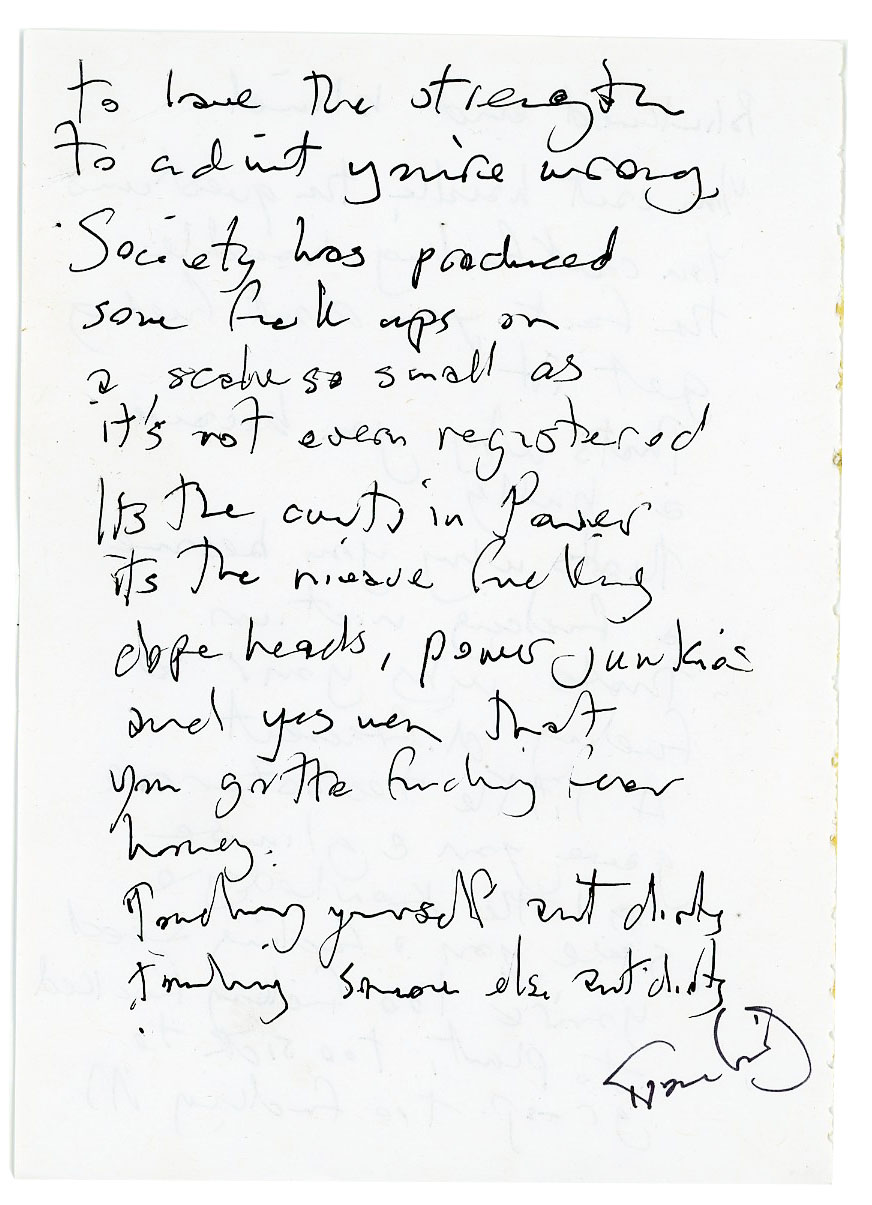 to have the strength
to admit you're wrong.
Society has produced
some fuck ups on
a scale so small as
it's not even registered
Its the cunts in Power
its the nieave fucking
dope heads, power junkies
and yes men that
you gotta fucking fear
honey.
Touching yourself aint dirty.
touching someone else aint dirty